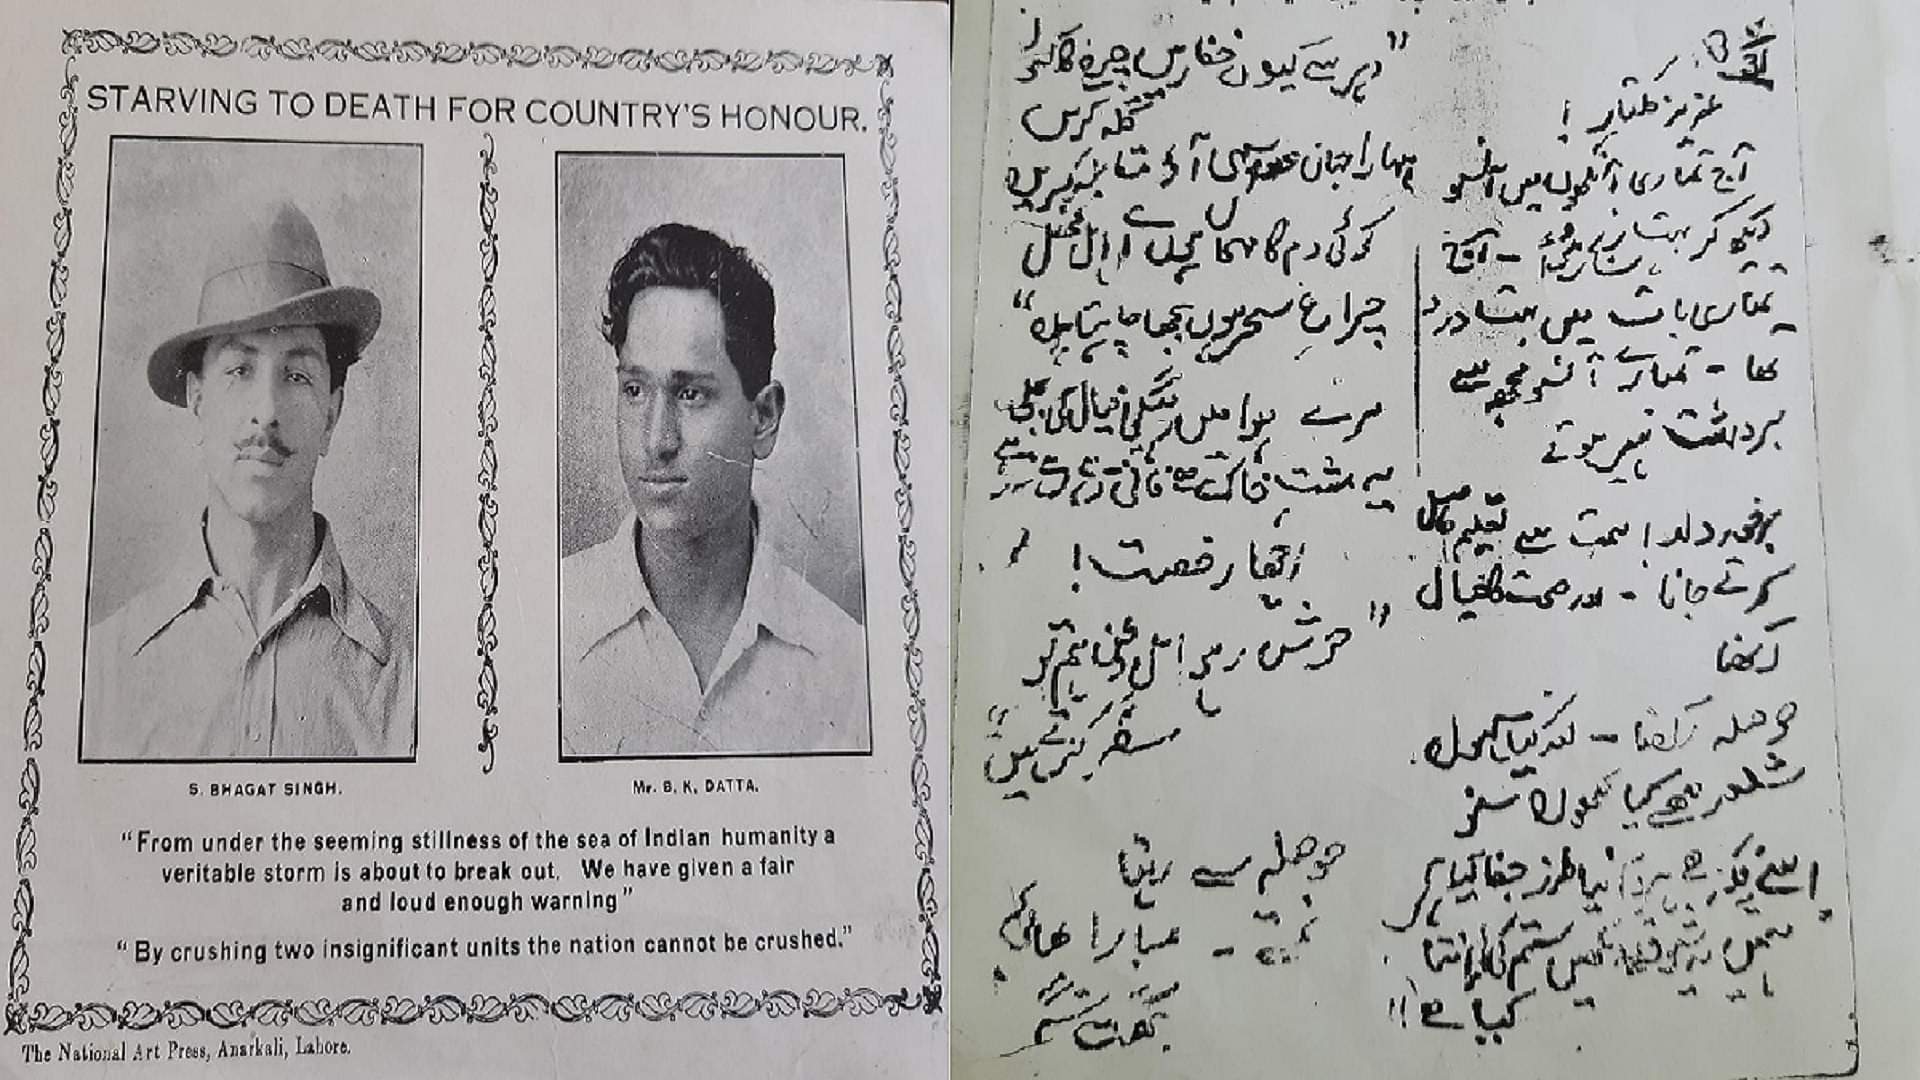 STARVING TO DEATH FOR COUNTRY'S HONOUR.
S. BHAGAT SINGH.
Mr. B. K. DATTA.
"From under the seeming stillness of the sea of Indian humanity a
veritable storm is about to break out. We have given a fair
and loud enough warning"
"By crushing two insignificant units the nation cannot be crushed."
The National Art Press, Anarkali, Lahore.
عزیز کلتار !
آج تمہاری آنکھوں میں آنسو
دیکھ کر بہت رنج ہوا - آج
تمہاری بات میں بہت درد
تھا - تمہارے آنسو مجھ سے
برداشت نہیں ہوتے
برخوردار ہمت سے تعلیم حاصل
کرتے جانا - اور صحت کا خیال
رکھنا
حوصلہ رکھنا - اور کیا لکھوں
شعر کیا لکھوں سنو
اسے فکر ہے ہردم نیا طرز جفا کیا ہے
ہمیں یہ شوق ہے دیکھیں ستم کی انتہا
کیا ہے !!
"دہر سے کیوں خفا رہیں چرخ کا کیوں
گلہ کریں
سارا جہاں عدو سہی آؤ مقابلہ کریں
کوئی دم کا مہماں ہوں اے اہل محفل
چراغ سحر ہوں بجھا چاہتا ہوں"
مرے ہوا میں رہے گی خیال کی بجلی
یہ مشت خاک ہے فانی رہے رہے نہ رہے
اچھا رخصت !
"خوش رہو اہل وطن ہم تو
سفر کرتے ہیں"
حوصلہ سے رہنا
نمستے - تمہارا بھائی
بھگت سنگھ